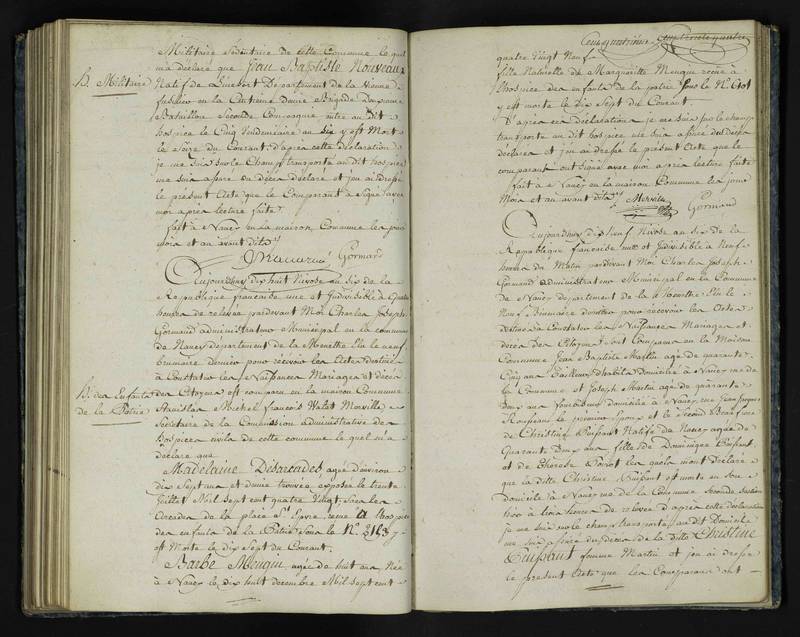 Militaire Sédentaire de cette Commune le quel
m'a déclaré que Jean Baptiste Nouveau
h. Militaire
Natif de Département de la Vienne
fusilier en la Centième Demie Brigade
Bataillon Seconde Compagnie entré au dit
hospice le Cinq Vendemiaire an six y est Mort
le Seize du Courant: d'après cette déclaration
je me suis sur le Champ transporté au dit hospice
me suis assuré du décès déclaré et j'en ai dressé
le présent Acte que le Comparant a Signé avec
moi après lecture faite
fait à Nancy en la maison Commune les jour
mois et an avant dits
Gormand
Aujourdhuy dix huit Nivose an six de la
République française une et Indivisible à quatre
heures de relevée pardevant Moi Charles Joseph
Gormand administrateur Municipal en la commune
de Nancy département de la Meurthe Elu le neuf
brumaire dernier pour recevoir les Actes destinés
à Constater les Naissances Mariages et décès
h. des Enfants
de la Patrie
des Citoyens est comparu en la maison Commune
Stanislas Michel françois Valet Merville
Secrétaire de la Commission administrative des
hospices civils de cette commune le quel m'a
déclaré que
Madelaine Désarcades agée d'environ
dix Sept ans et demie trouvée exposée le trente
Juillet Mil sept cent quatre Vingt, sous les
Arcades de la place St Epvre, reçue à l'hospice
des enfants de la Patrie sous le No. 3183 y
est Morte le dix Sept du Courant.
Barbe Mengin agée de huit ans Née
à Nancy le dix huit decembre Mil sept cent
quatre Vingt Neuf
fille Naturelle de Marguerite Mengin reçue à
l'hospice des enfants de la patrie sous le No.
y est morte le dix Sept du Courant
D'après ces déclarations je me suis sur le champ
transporté au dit hospice me suis assuré des décès
déclarés et j'en ai dressé le présent Acte que le
comparant ont Signé avec moi après lecture faite
fait à Nancy en la maison Commune les jour
Mois et an avant dits
Gormand
Aujourdhuy dix Neuf Nivose an six de la
République française une et Indivisible à Neuf
heures du Matin pardevant Moi Charles Joseph
Gormand administrateur Municipal en la Commune
de Nancy département de la Meurthe Elu le
Neuf Brumaire dernier pour recevoir les Actes
destinés à Constater les Naissances Mariages et
décès des Citoyens Sont Comparus en la Maison
Commune Jean Baptiste agé de quarante
Cinq ans Tailleur d'habits Domicilié à Nancy rue de
la Commune et Joseph Martin agé de quarante
deux ans domicilié à Nancy rue Jean Jacques
Rousseau le premier Epoux et le Second Beau frere
de Christine Puissant Native de Nancy agée de
Quarante Deux ans fille de Dominique Puissant
et de Therese les quels m'ont Déclaré
que la ditte Christine Puissant est morte en son
domicile à Nancy rue de la Commune Seconde Section
hier à heures de relevée d'après cette déclaration
je me suis sur le champ transporté au dit Domicile
me suis assuré du Décès de la ditte Christine
Puissant femme Martin et j'en ai dressé
le présent Acte que les Comparans ont